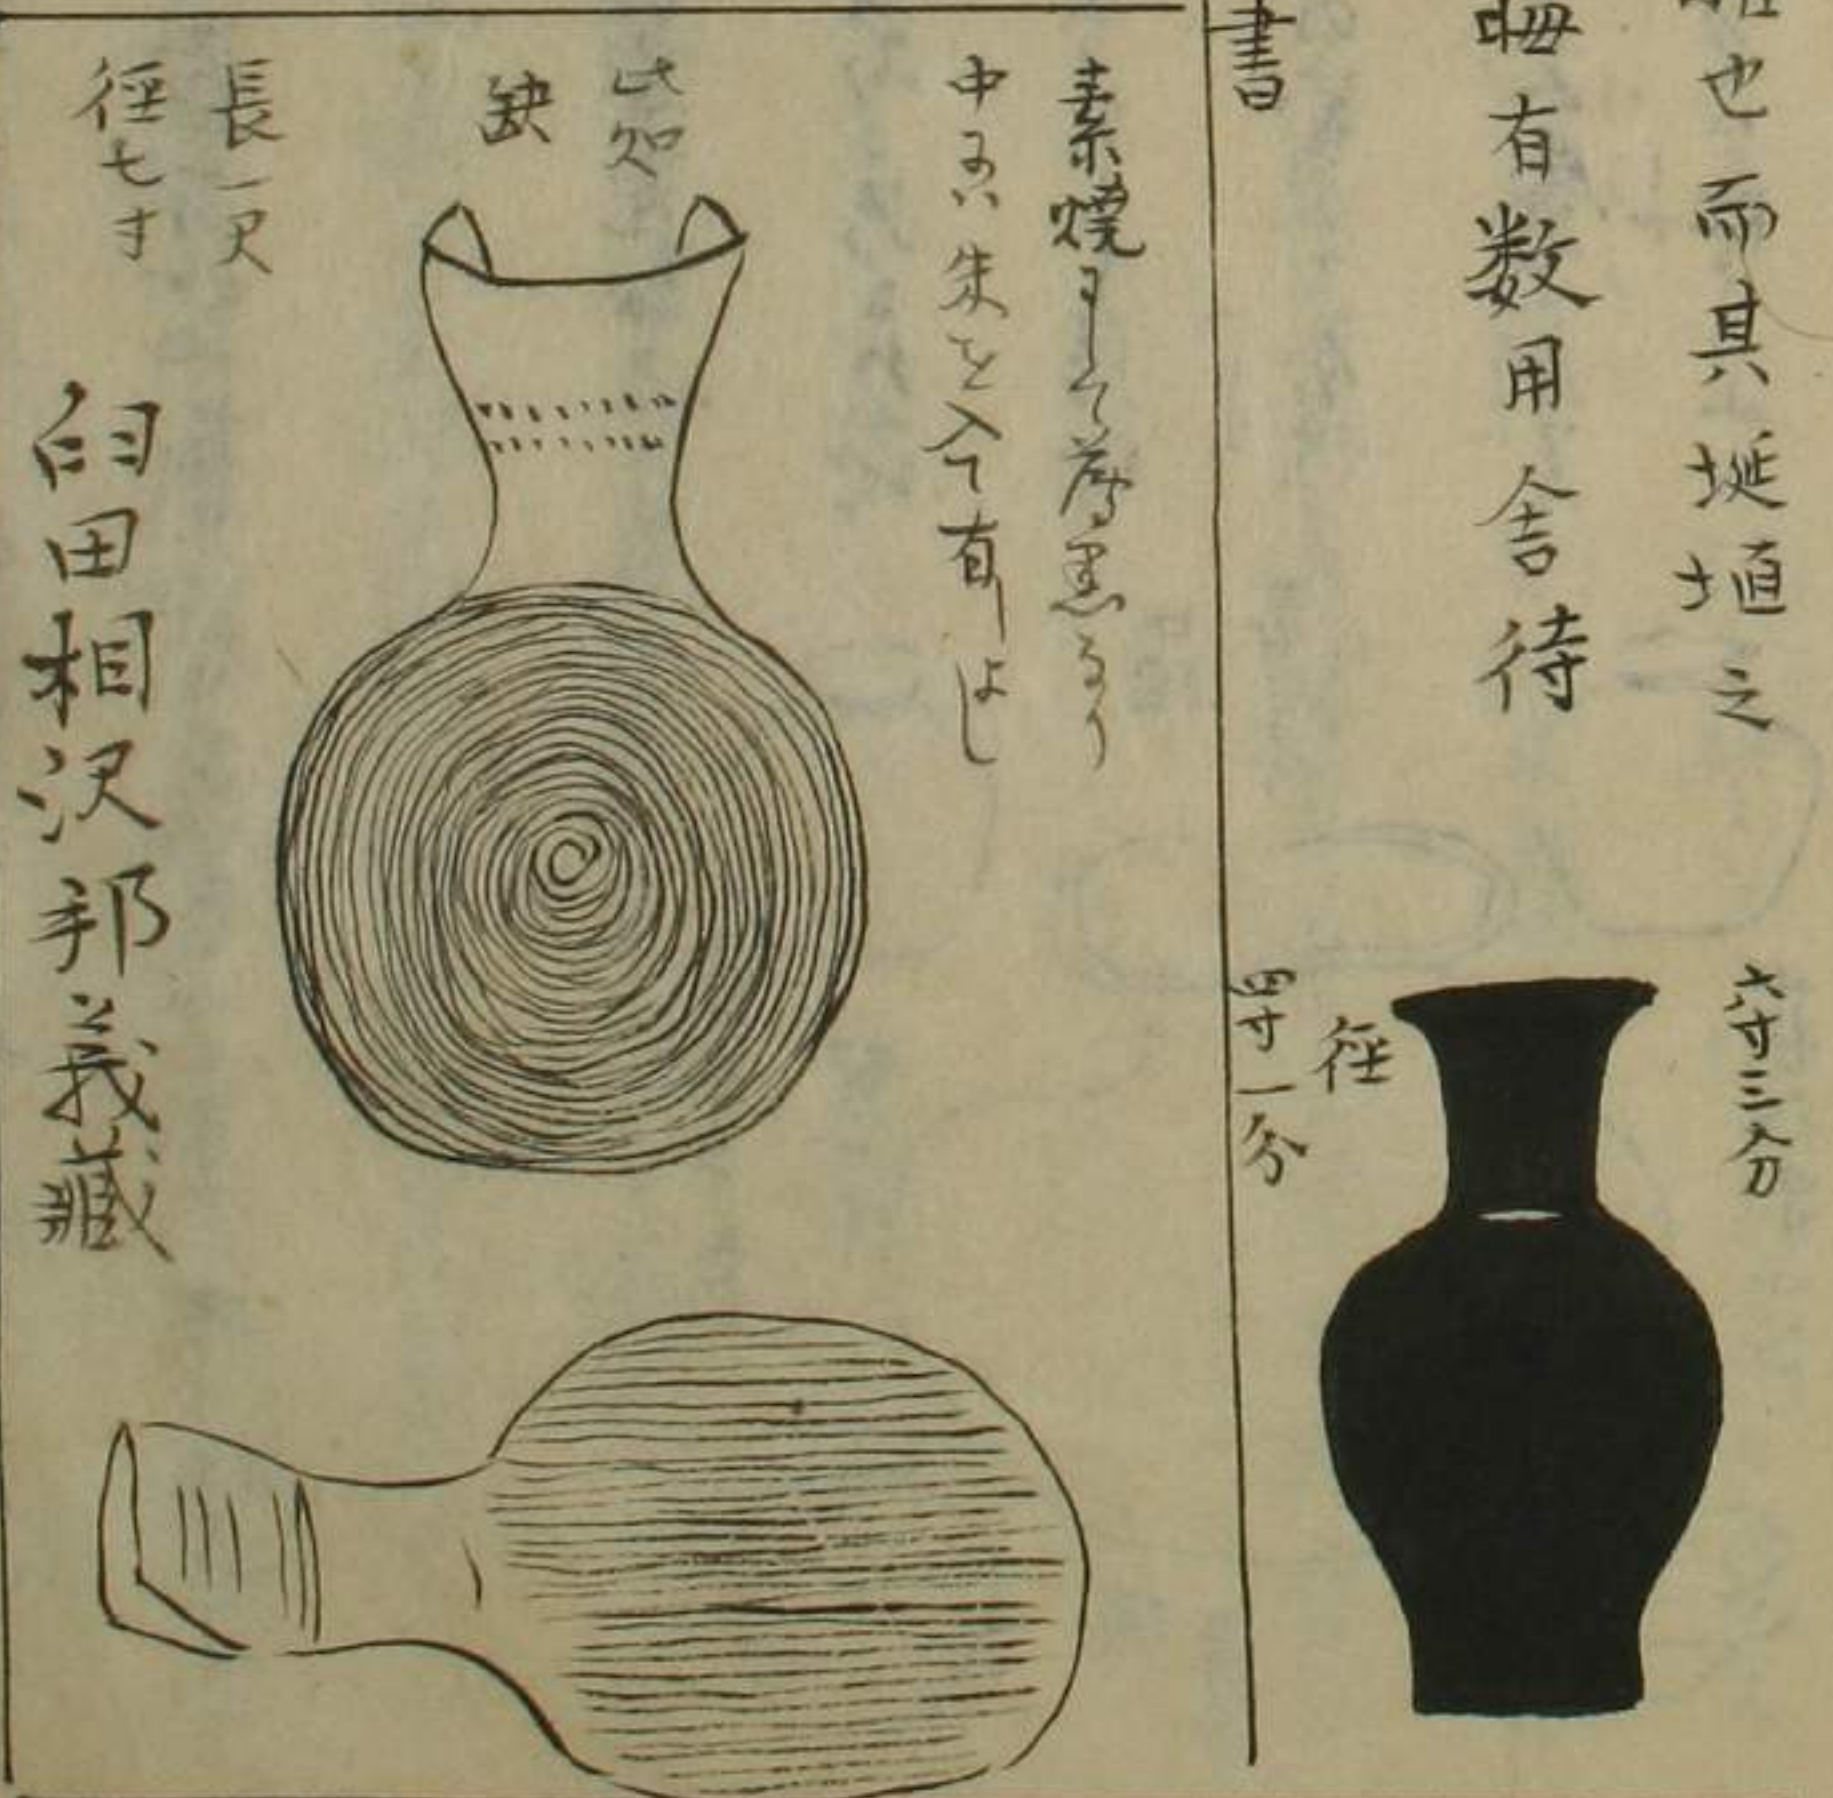 也而其埏埴之
晦有数用舎待
六寸三分
徑
四寸一分
書
素燒にして薄黒なり
中には朱を入て有しよし
此処
缺
長一尺
徑七寸
臼田相沢邦義藏